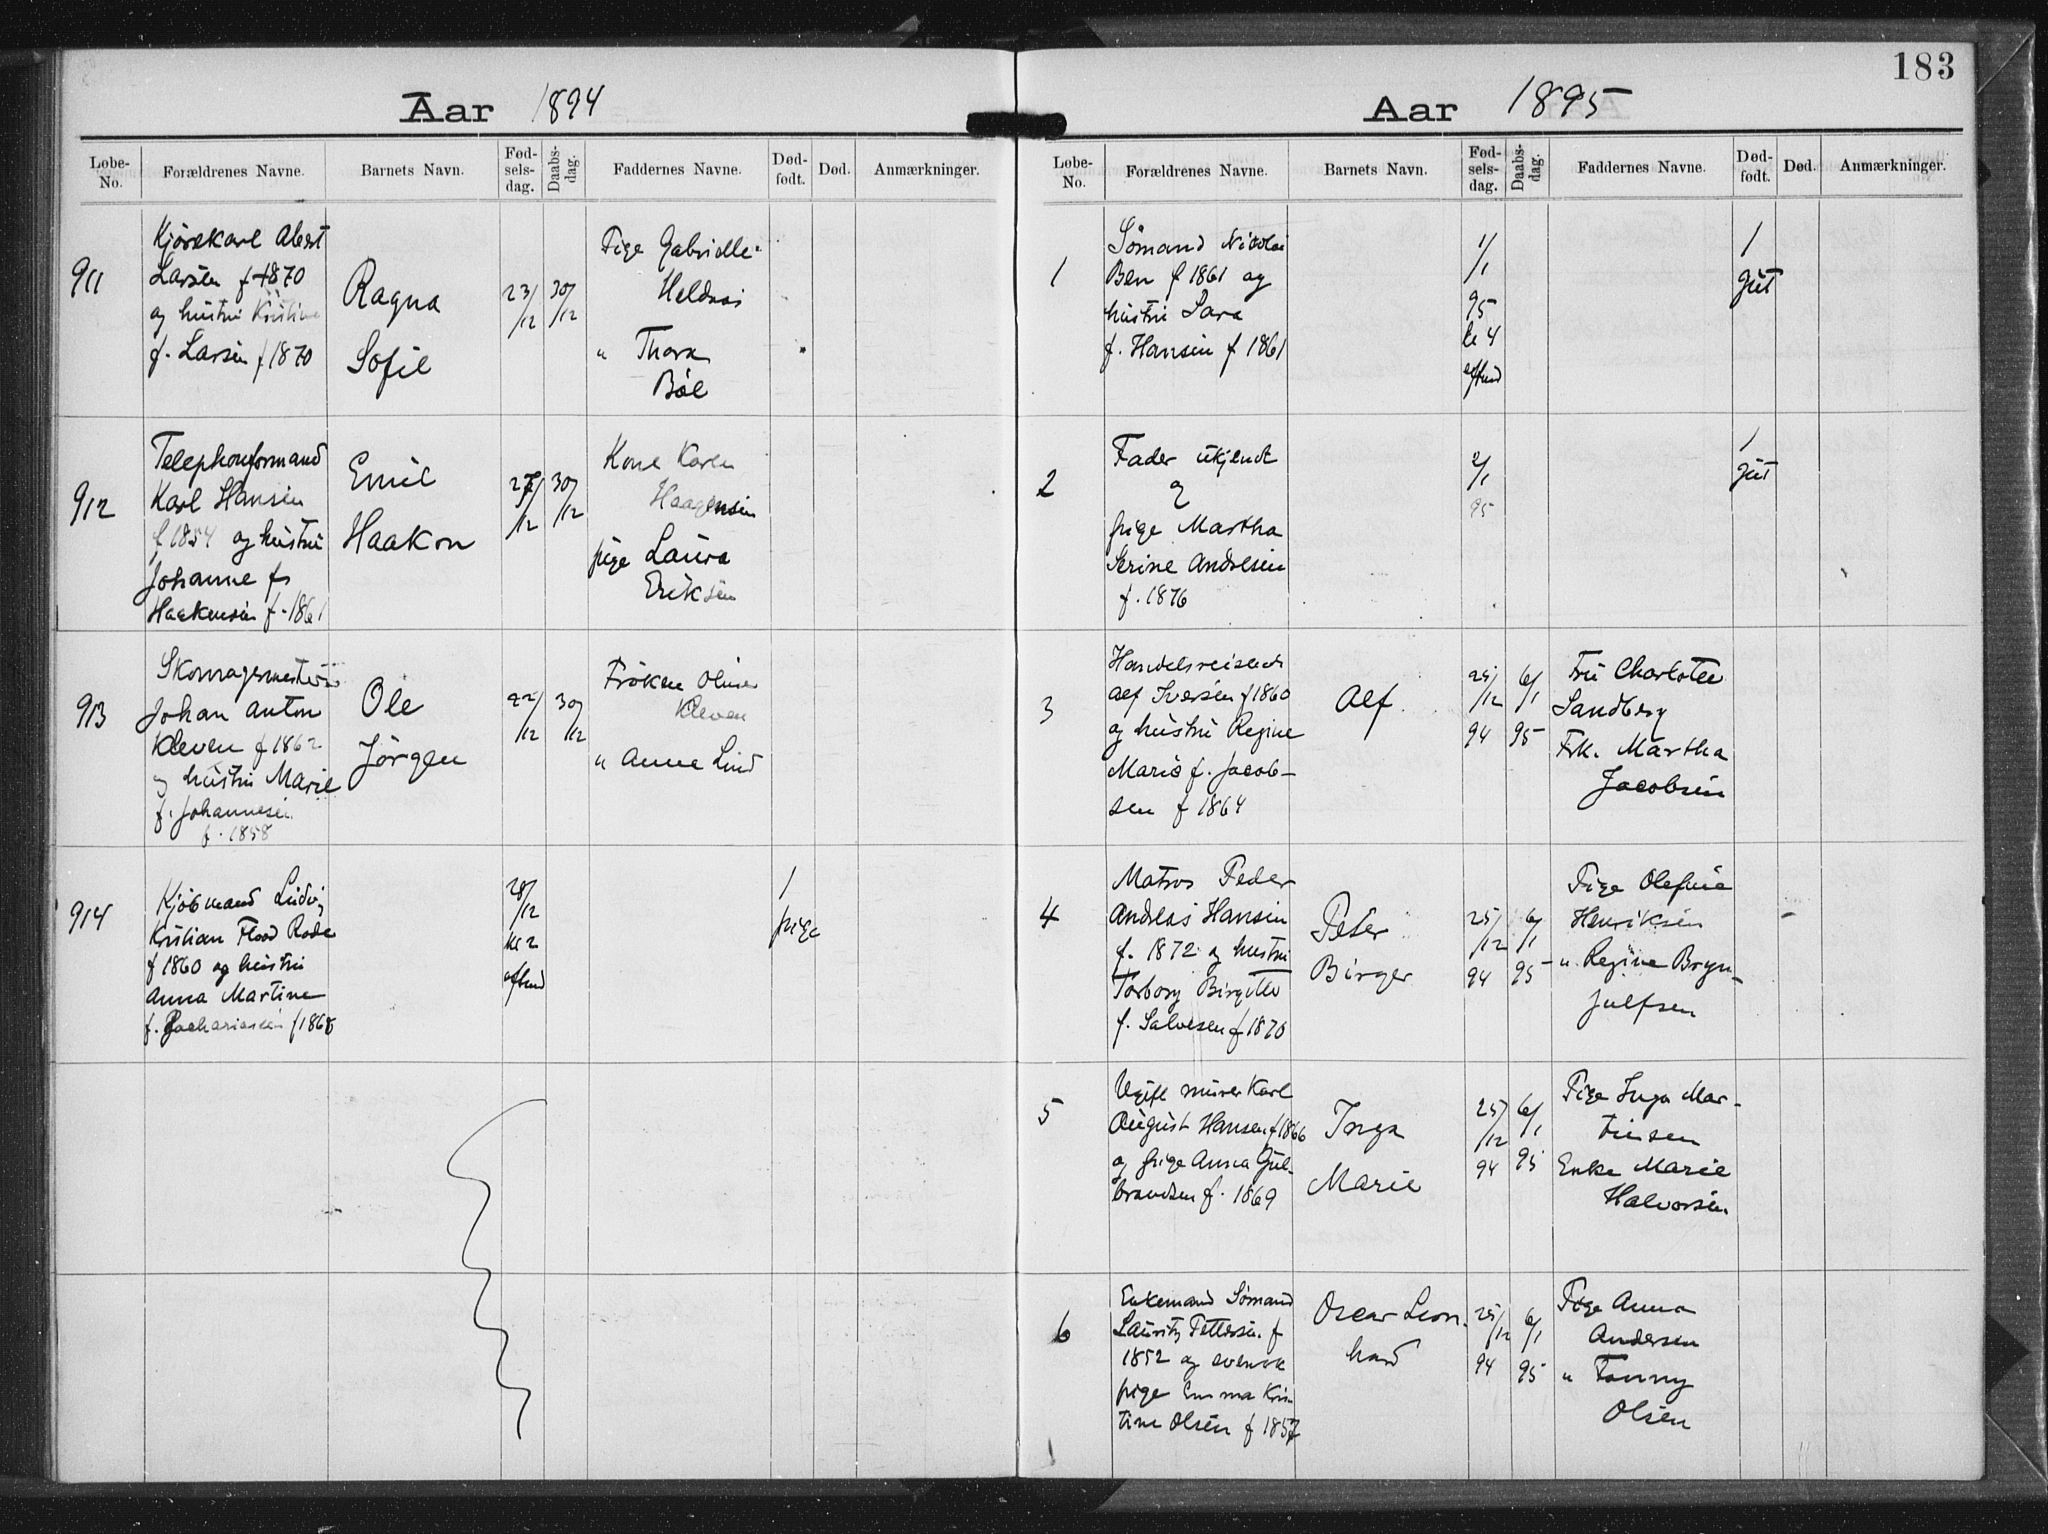 183
Aar 1894
Løbe-No.
Forældrenes Navne.
Barnets Navn.
Fød-selsdag.
Daabs-dag.
Faddernes Navne.
Død-født.
Død.
Anmærkninger.
911
Kjørekarl Albert
Larsen f 1870
og hustru Kristine
f. Larsen f 1870
Ragna
Sofie
23/12
30/12
Pige Gabrielle
" Thora
Bøe
912
Telephonformand
Karl Hansen
f 1854 og hustru
Johanne f.
Haakensen f. 1861
Emil
Haakon
27/12
30/12
Kone Karen
Haagensen
pige Laura
Eriksen
913
Skomagermester
Johan Anton
Kleven f 1862
og hustru Marie
f. Johannesen
f. 1858
Ole
Jørgen
22/12
30/12
Frøken
Kleven
" Anna Lind
914
Kjøbmand Ludvig
Kristian Flood Rode
f 1860 og hustru
Anna Martine
f. Zachariasen f 1868
28/12
kl 2
eftmd
1
pige
Aar 1895
Løbe-No.
Forældrenes Navne.
Barnets Navn.
Fød-selsdag.
Daabs-dag.
Faddernes Navne.
Død-født.
Død.
Anmærkninger.
1
Sømand Nicolai
Ben f 1861 og
hustru Sara
f. Hansen f 1861
1/1
95
kl 4
eftmd
1
gut
2
Fader ukjendt
og
pige Martha
Serine Andresen
f. 1876
2/1
95
1
gut
3
Handelsreisende
Alf Iversen f 1860
og hustru Regine
Marie f. Jacob-
sen f 1864
Alf
25/12
94
6/1
95
Fru Charlotte
Sandberg
Frk. Martha
Jacobsen
4
Matros Peder
Andreas Hansen
f. 1872 og hustru
Torborg Birgitte
f. Salvesen f 1870
Peter
Birger
25/12
94
6/1
95
Pige Olefine
Henriksen
" Regine Bryn-
julfsen
5
Ugift murer Karl
August Hansen f 1866
og pige Anna Gul-
brandsen f. 1869
Inga
Marie
25/12
94
6/1
95
Pige Inga Mar-
tinsen
Enke Marie
Halvorsen
6
Enkemand Sømand
Lauritz Pettersen f
1852 og svensk
pige Emma Kris
tine Olsen f 1857
Oscar Leon-
hard
25/12
94
6/1
95
Pige Anna
Andersen
" Fanny
Olsen